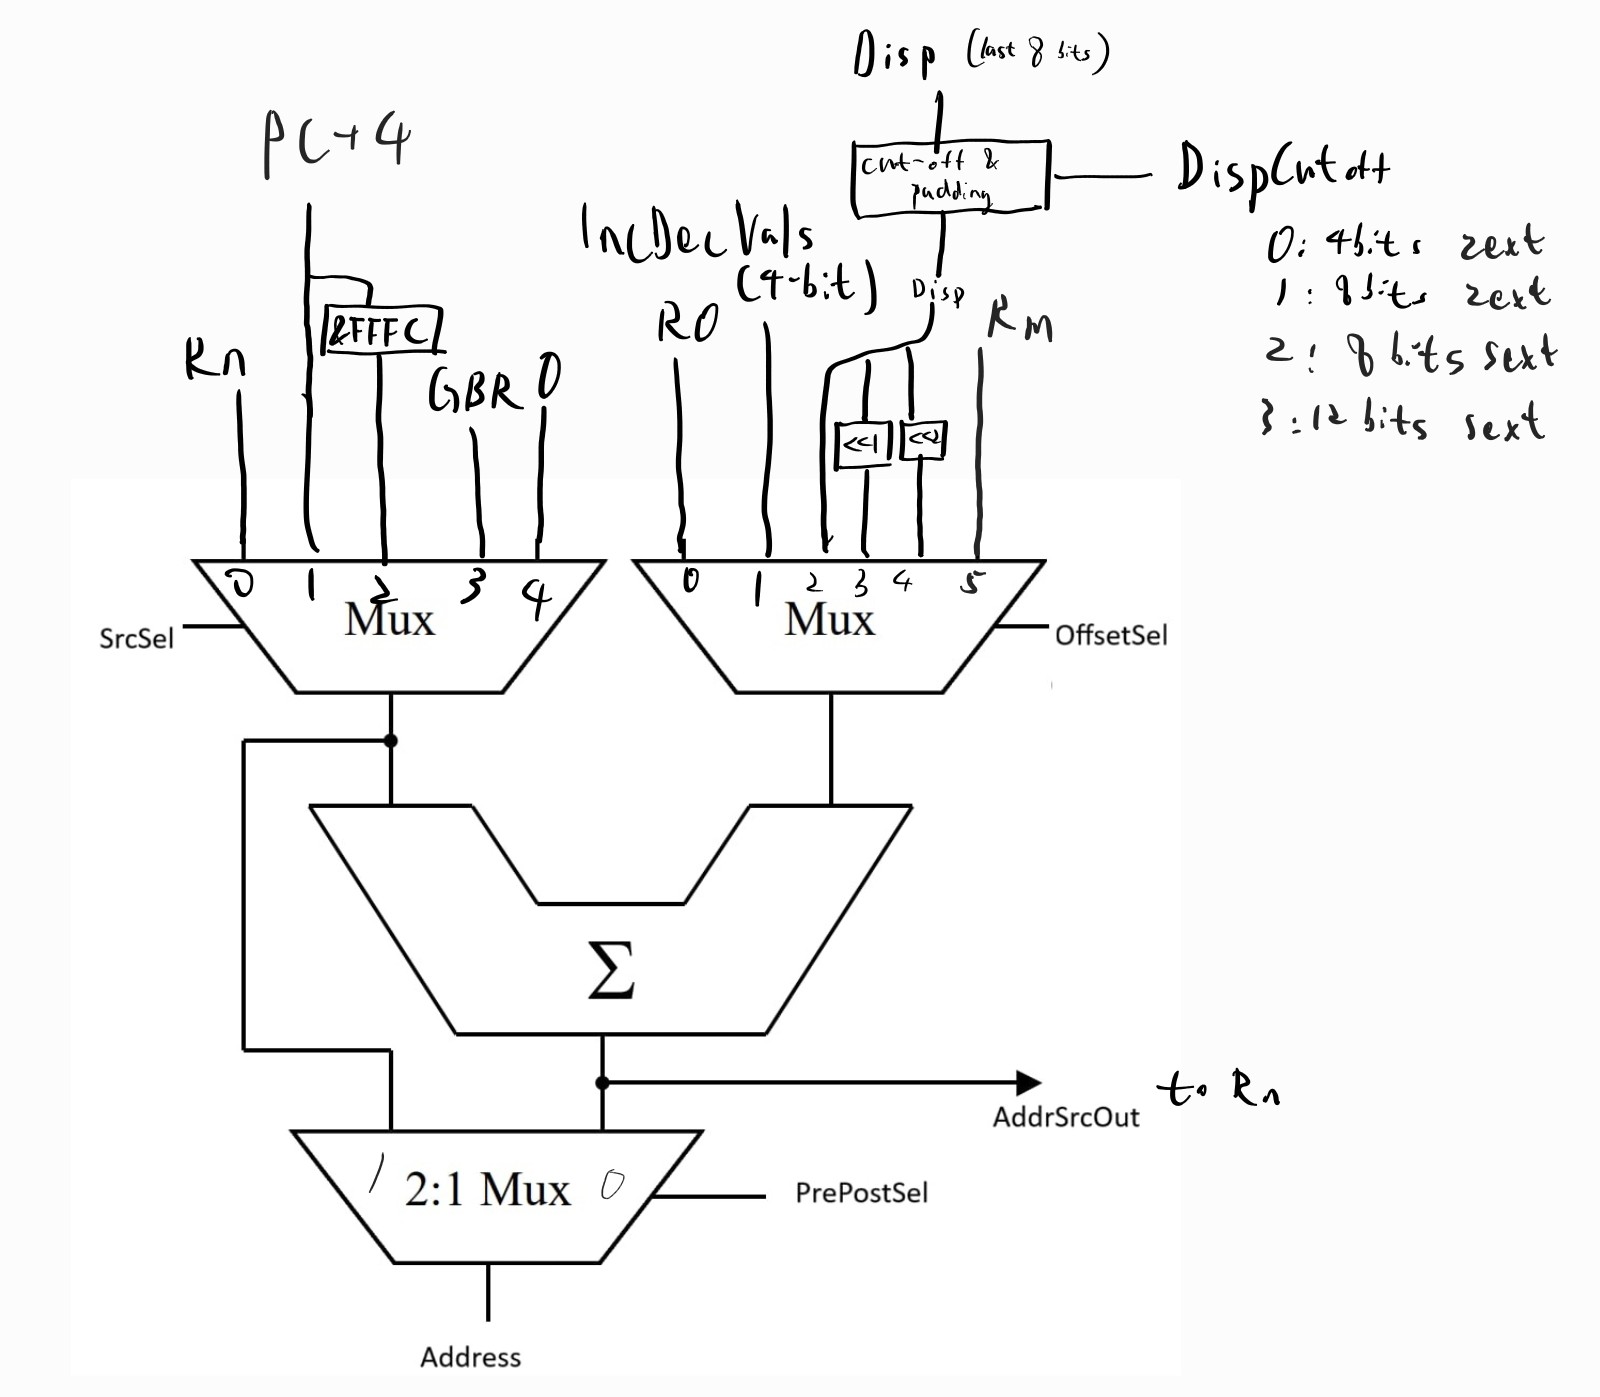 Disp (last 8 bits)
PC+4
cut-off &
padding
DispCutoff
0: 4bits zext
1: 8bits zext
2: 8 bits sext
3: 12 bits sext
IncDecVals
(4-bit)
Disp
R0
Rm
&FFFC
Rn
GBR
0
<<1
<<2
0 1 2 3 4
Mux
SrcSel
0 1 2 3 4 5
Mux
OffsetSel
Σ
AddrSrcOut
to Rn
1 2:1 Mux 0
PrePostSel
Address